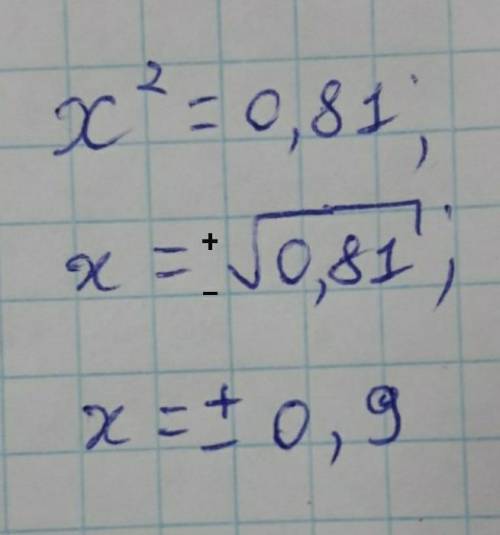 x² = 0,81;
x = ±√0,81;
x = ± 0,9